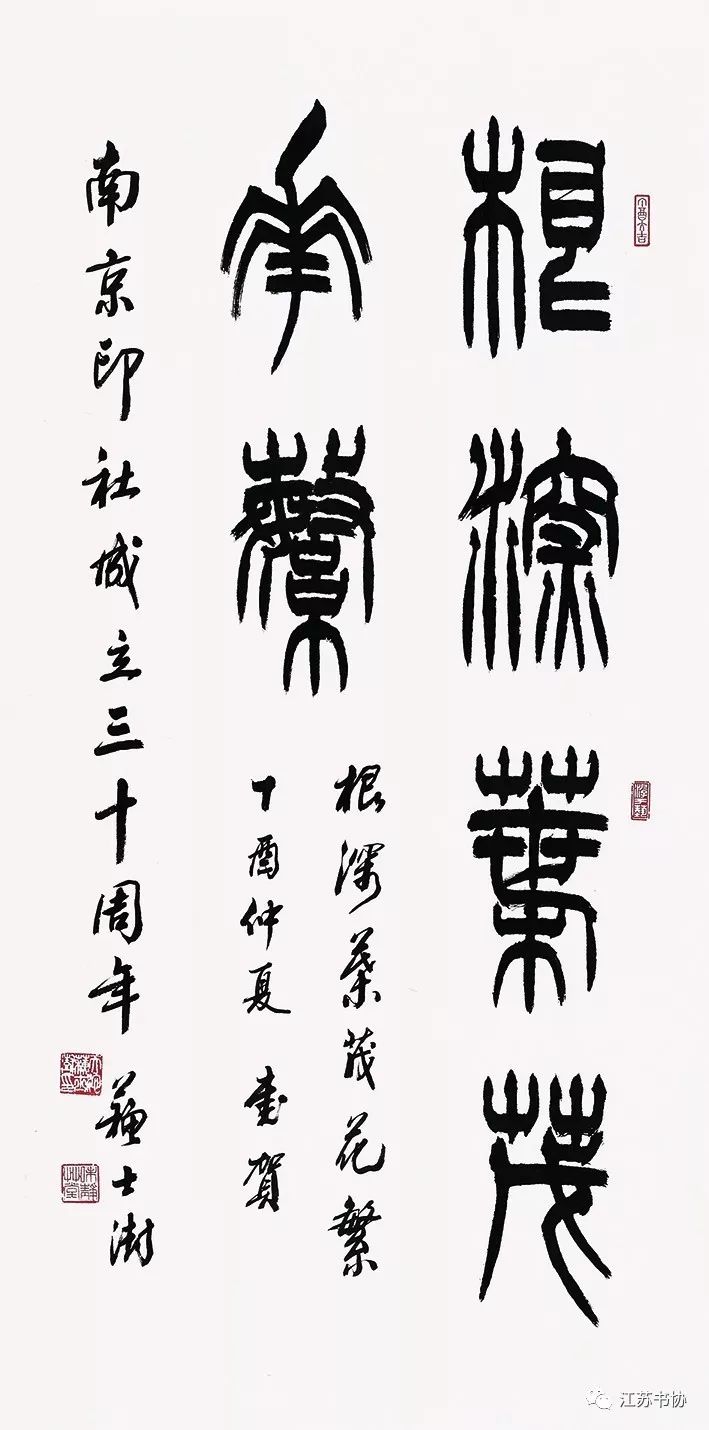 丁酉大吉
根深葉茂
花繁
根深葉茂花繁
丁酉仲夏 書賀
南京印社成立三十周年 蘇士澍
江苏书协